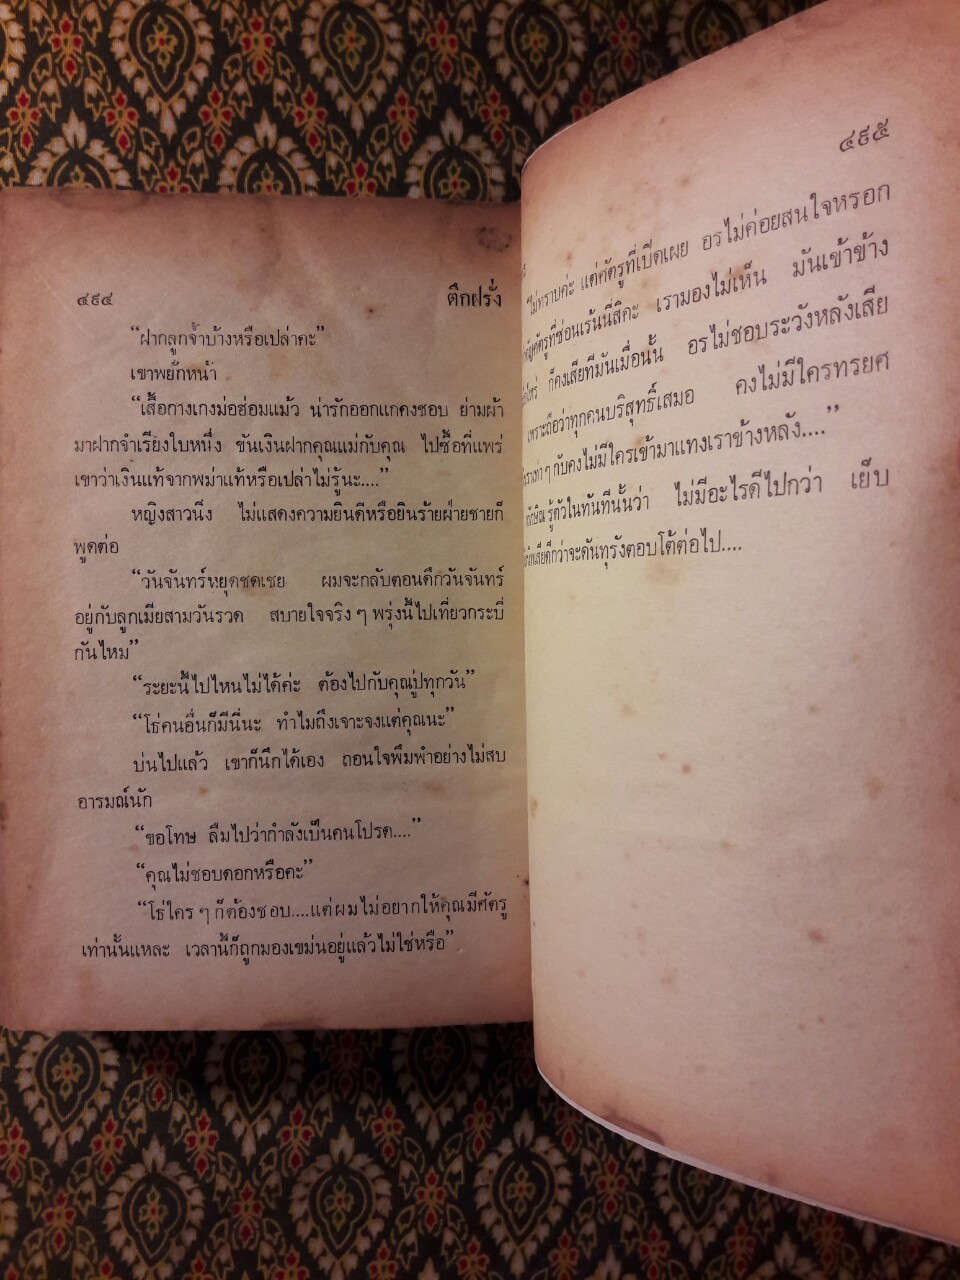 ๔๙๔
ตึกฝรั่ง
“ฝากลูกจ้ำบ้างหรือเปล่าคะ”
เขาพยักหน้า
“เสื้อกางเกงม่อฮ่อมแม้ว น่ารักออกแกคงชอบ ย่ามผ้า
มาฝากจำเรียงใบหนึ่ง ขันเงินฝากคุณแม่กับคุณ ไปซื้อที่แพร่
เขาว่าเงินแท้จากพม่าแท้หรือเปล่าไม่รู้นะ....”
หญิงสาวนิ่ง ไม่แสดงความยินดีหรือยินร้ายฝ่ายชายก็
พูดต่อ
“วันจันทร์หยุดชดเชย ผมจะกลับตอนดึกวันจันทร์
อยู่กับลูกเมียสามวันรวด สบายใจจริง ๆ พรุ่งนี้ไปเที่ยวกระบี่
กันไหม”
“ระยะนี้ไปไหนไม่ได้ค่ะ ต้องไปกับคุณปู่ทุกวัน”
“โธ่คนอื่นก็มีนี่นะ ทำไมถึงเจาะจงแต่คุณนะ”
บ่นไปแล้ว เขาก็นึกได้เอง ถอนใจพึมพำอย่างไม่สบ
อารมณ์นัก
“ขอโทษ ลืมไปว่ากำลังเป็นคนโปรด....”
“คุณไม่ชอบดอกหรือคะ”
“โธ่ใคร ๆ ก็ต้องชอบ....แต่ผมไม่อยากให้คุณมีศัตรู
เท่านั้นแหละ เวลานี้ก็ถูกมองเขม่นอยู่แล้วไม่ใช่หรือ”
๔๙๕
“ไม่ทราบค่ะ แต่ศัตรูที่เปิดเผย อรไม่ค่อยสนใจหรอก
ศัตรูที่ซ่อนเร้นนี่สิคะ เรามองไม่เห็น มันเข้าข้าง
ก็คงเสียทีมันเมื่อนั้น อรไม่ชอบระวังหลังเสีย
เพราะถือว่าทุกคนบริสุทธิ์เสมอ คงไม่มีใครทรยศ
เราเท่า ๆ กับคงไม่มีใครเข้ามาแทงเราข้างหลัง....”
รู้ตัวในทันทีนั้นว่า ไม่มีอะไรดีไปกว่า เย็บ
เสียดีกว่าจะดันทุรังตอบโต้ต่อไป....